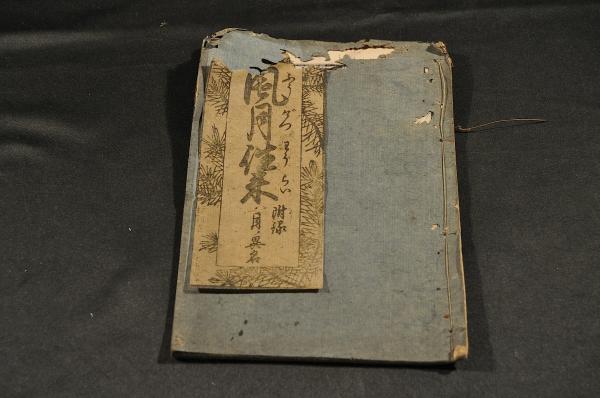 ふうげつわうらい
風月往来
附録
月ノ異名